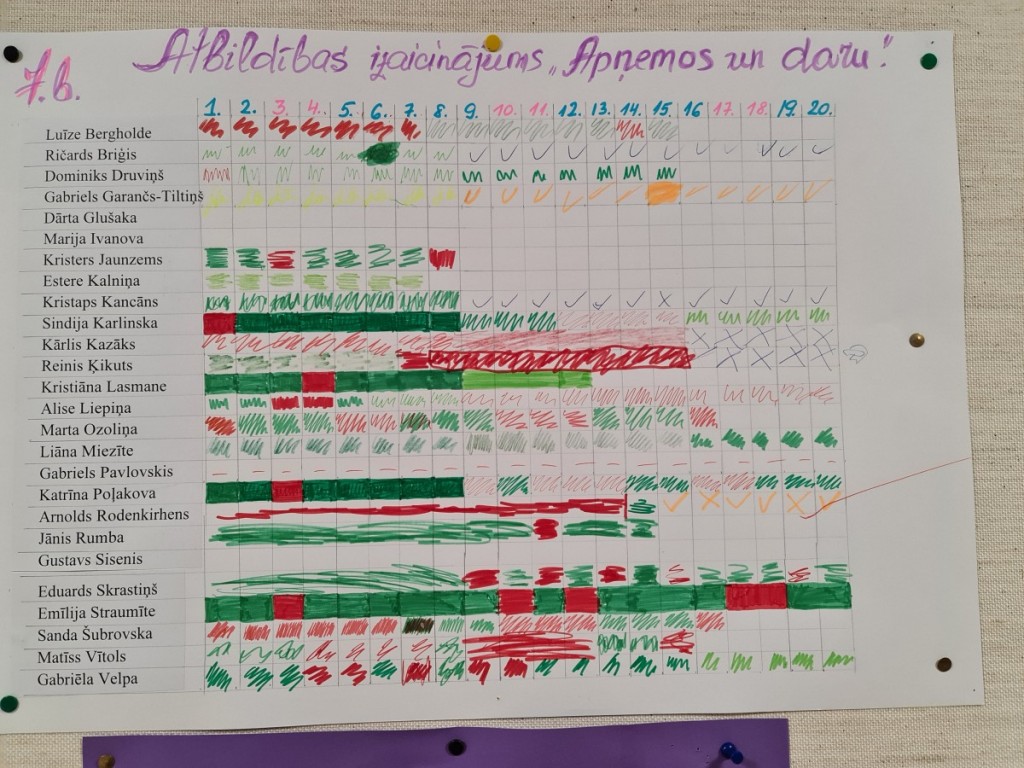 Atbildības izaicinājums „Apņemos un daru”.
7.b.
1. 2. 3. 4. 5. 6. 7. 8. 9. 10. 11. 12. 13. 14. 15 16 17. 18. 19. 20.
Luīze Bergholde
Ričards Briģis
Dominiks Druviņš
Gabriels Garančs-Tiltiņš
Dārta Glušaka
Marija Ivanova
Kristers Jaunzems
Estere Kalniņa
Kristaps Kancāns
Sindija Karlinska
Kārlis Kazāks
Reinis Ķikuts
Kristiāna Lasmane
Alise Liepiņa
Marta Ozoliņa
Liāna Miezīte
Gabriels Pavlovskis
Katrīna Poļakova
Arnolds Rodenkirhens
Jānis Rumba
Gustavs Sisenis
Eduards Skrastiņš
Emīlija Straumīte
Sanda Šubrovska
Matīss Vītols
Gabriēla Velpa